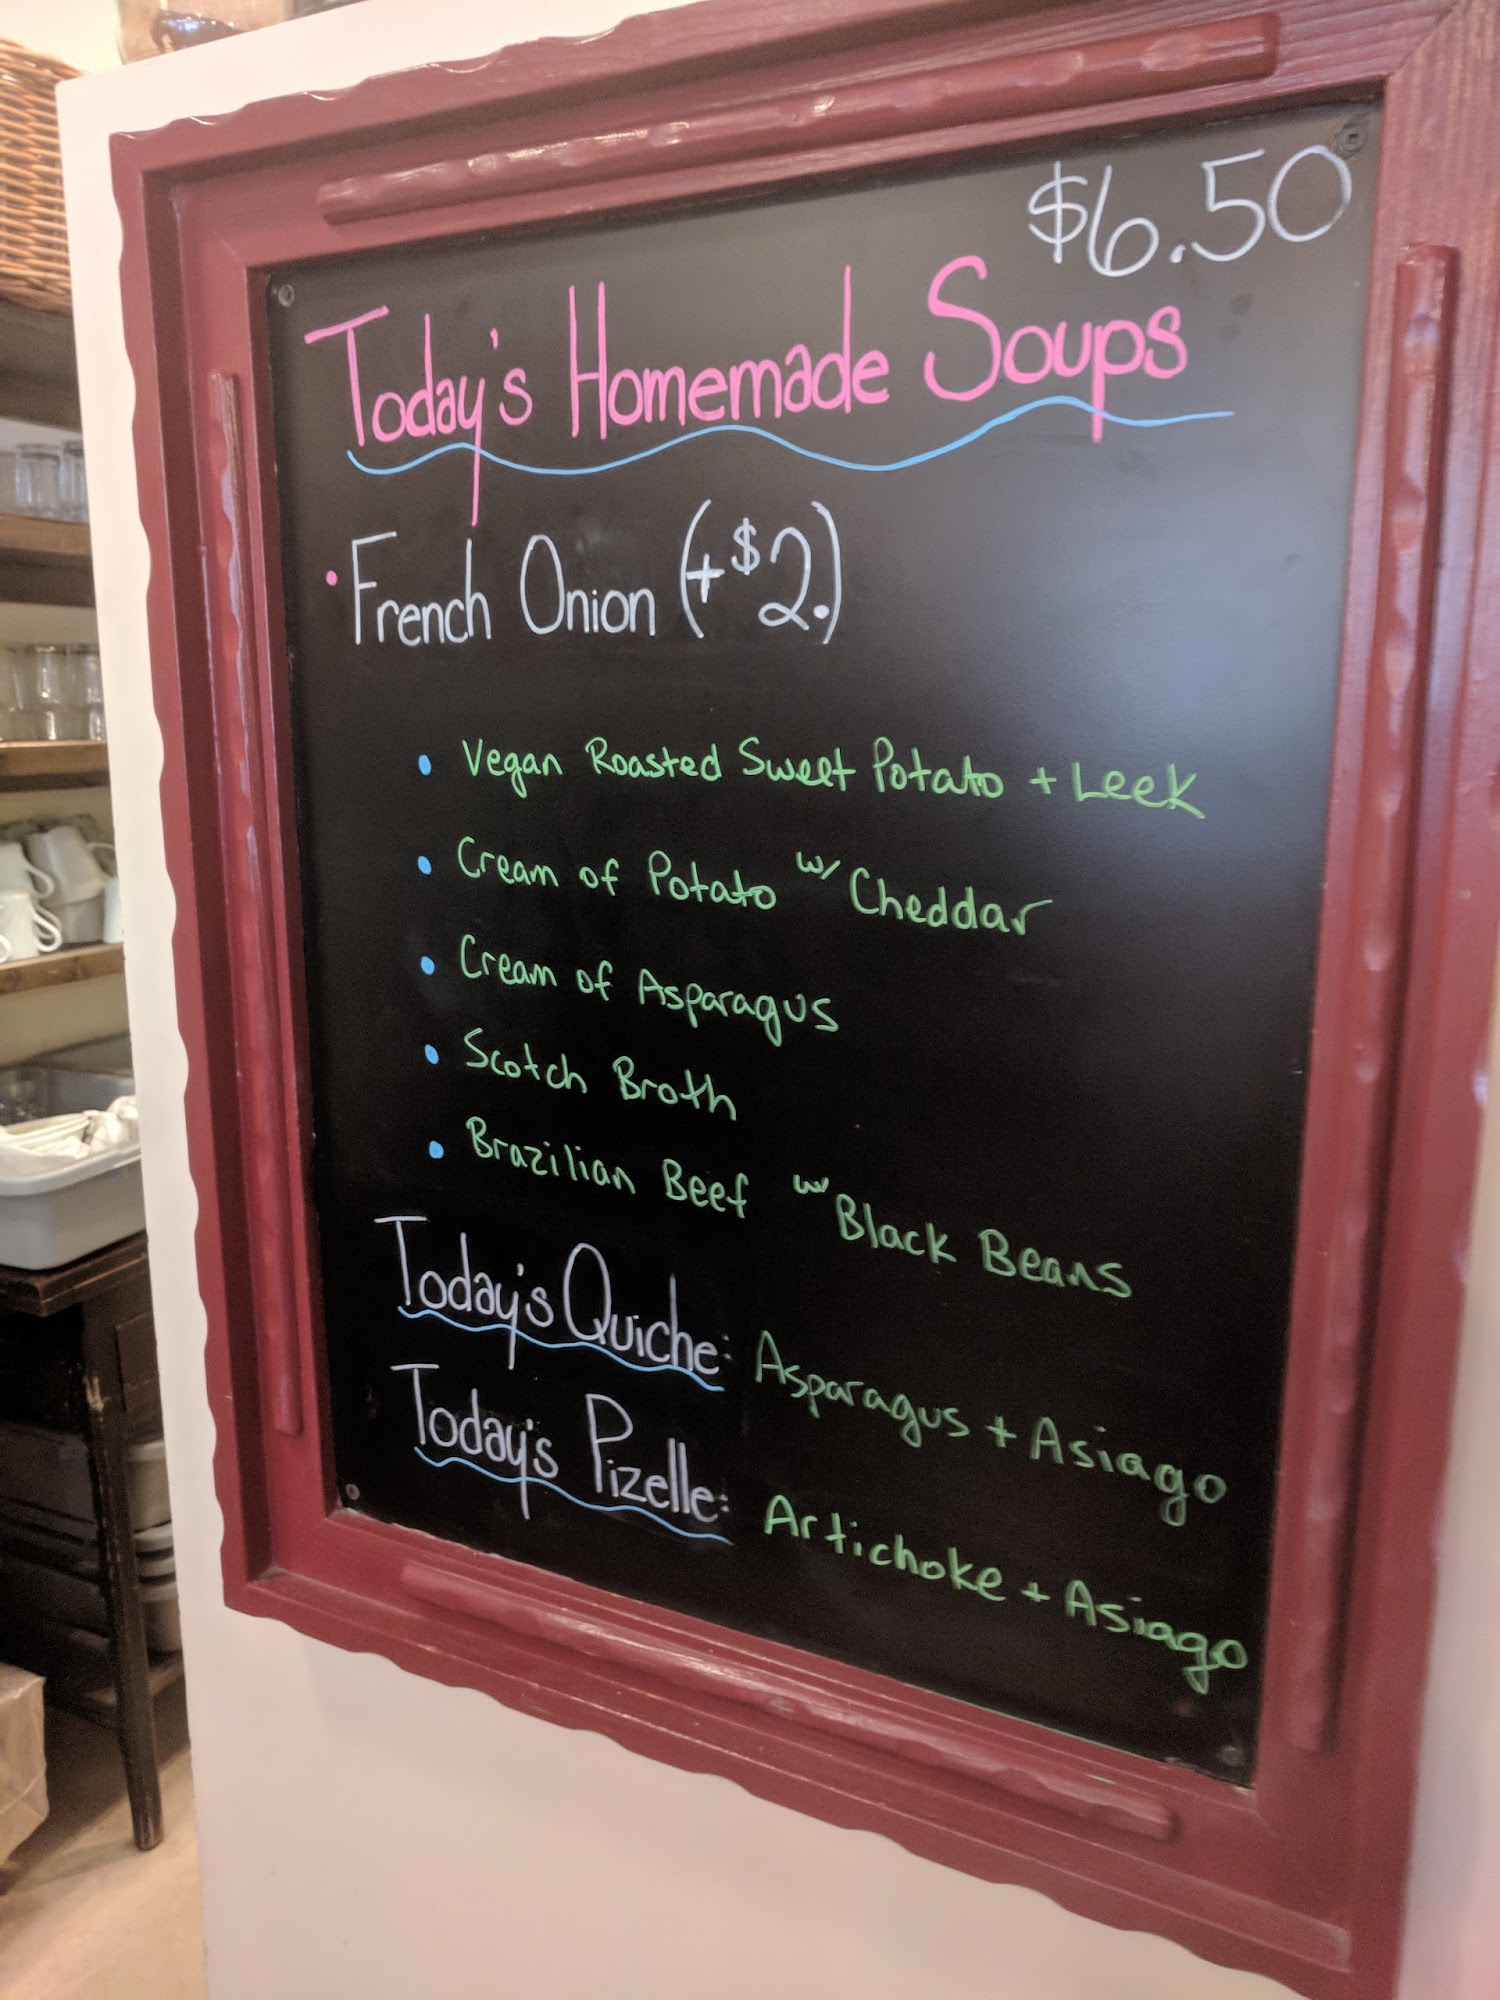 $6.50
Today's Homemade Soups
• French Onion (+$2.)
• Vegan Roasted Sweet Potato + Leek
• Cream of Potato w/ Cheddar
• Cream of Asparagus
• Scotch Broth
• Brazilian Beef w/ Black Beans
Today's Quiche: Asparagus + Asiago
Today's Pizelle: Artichoke + Asiago